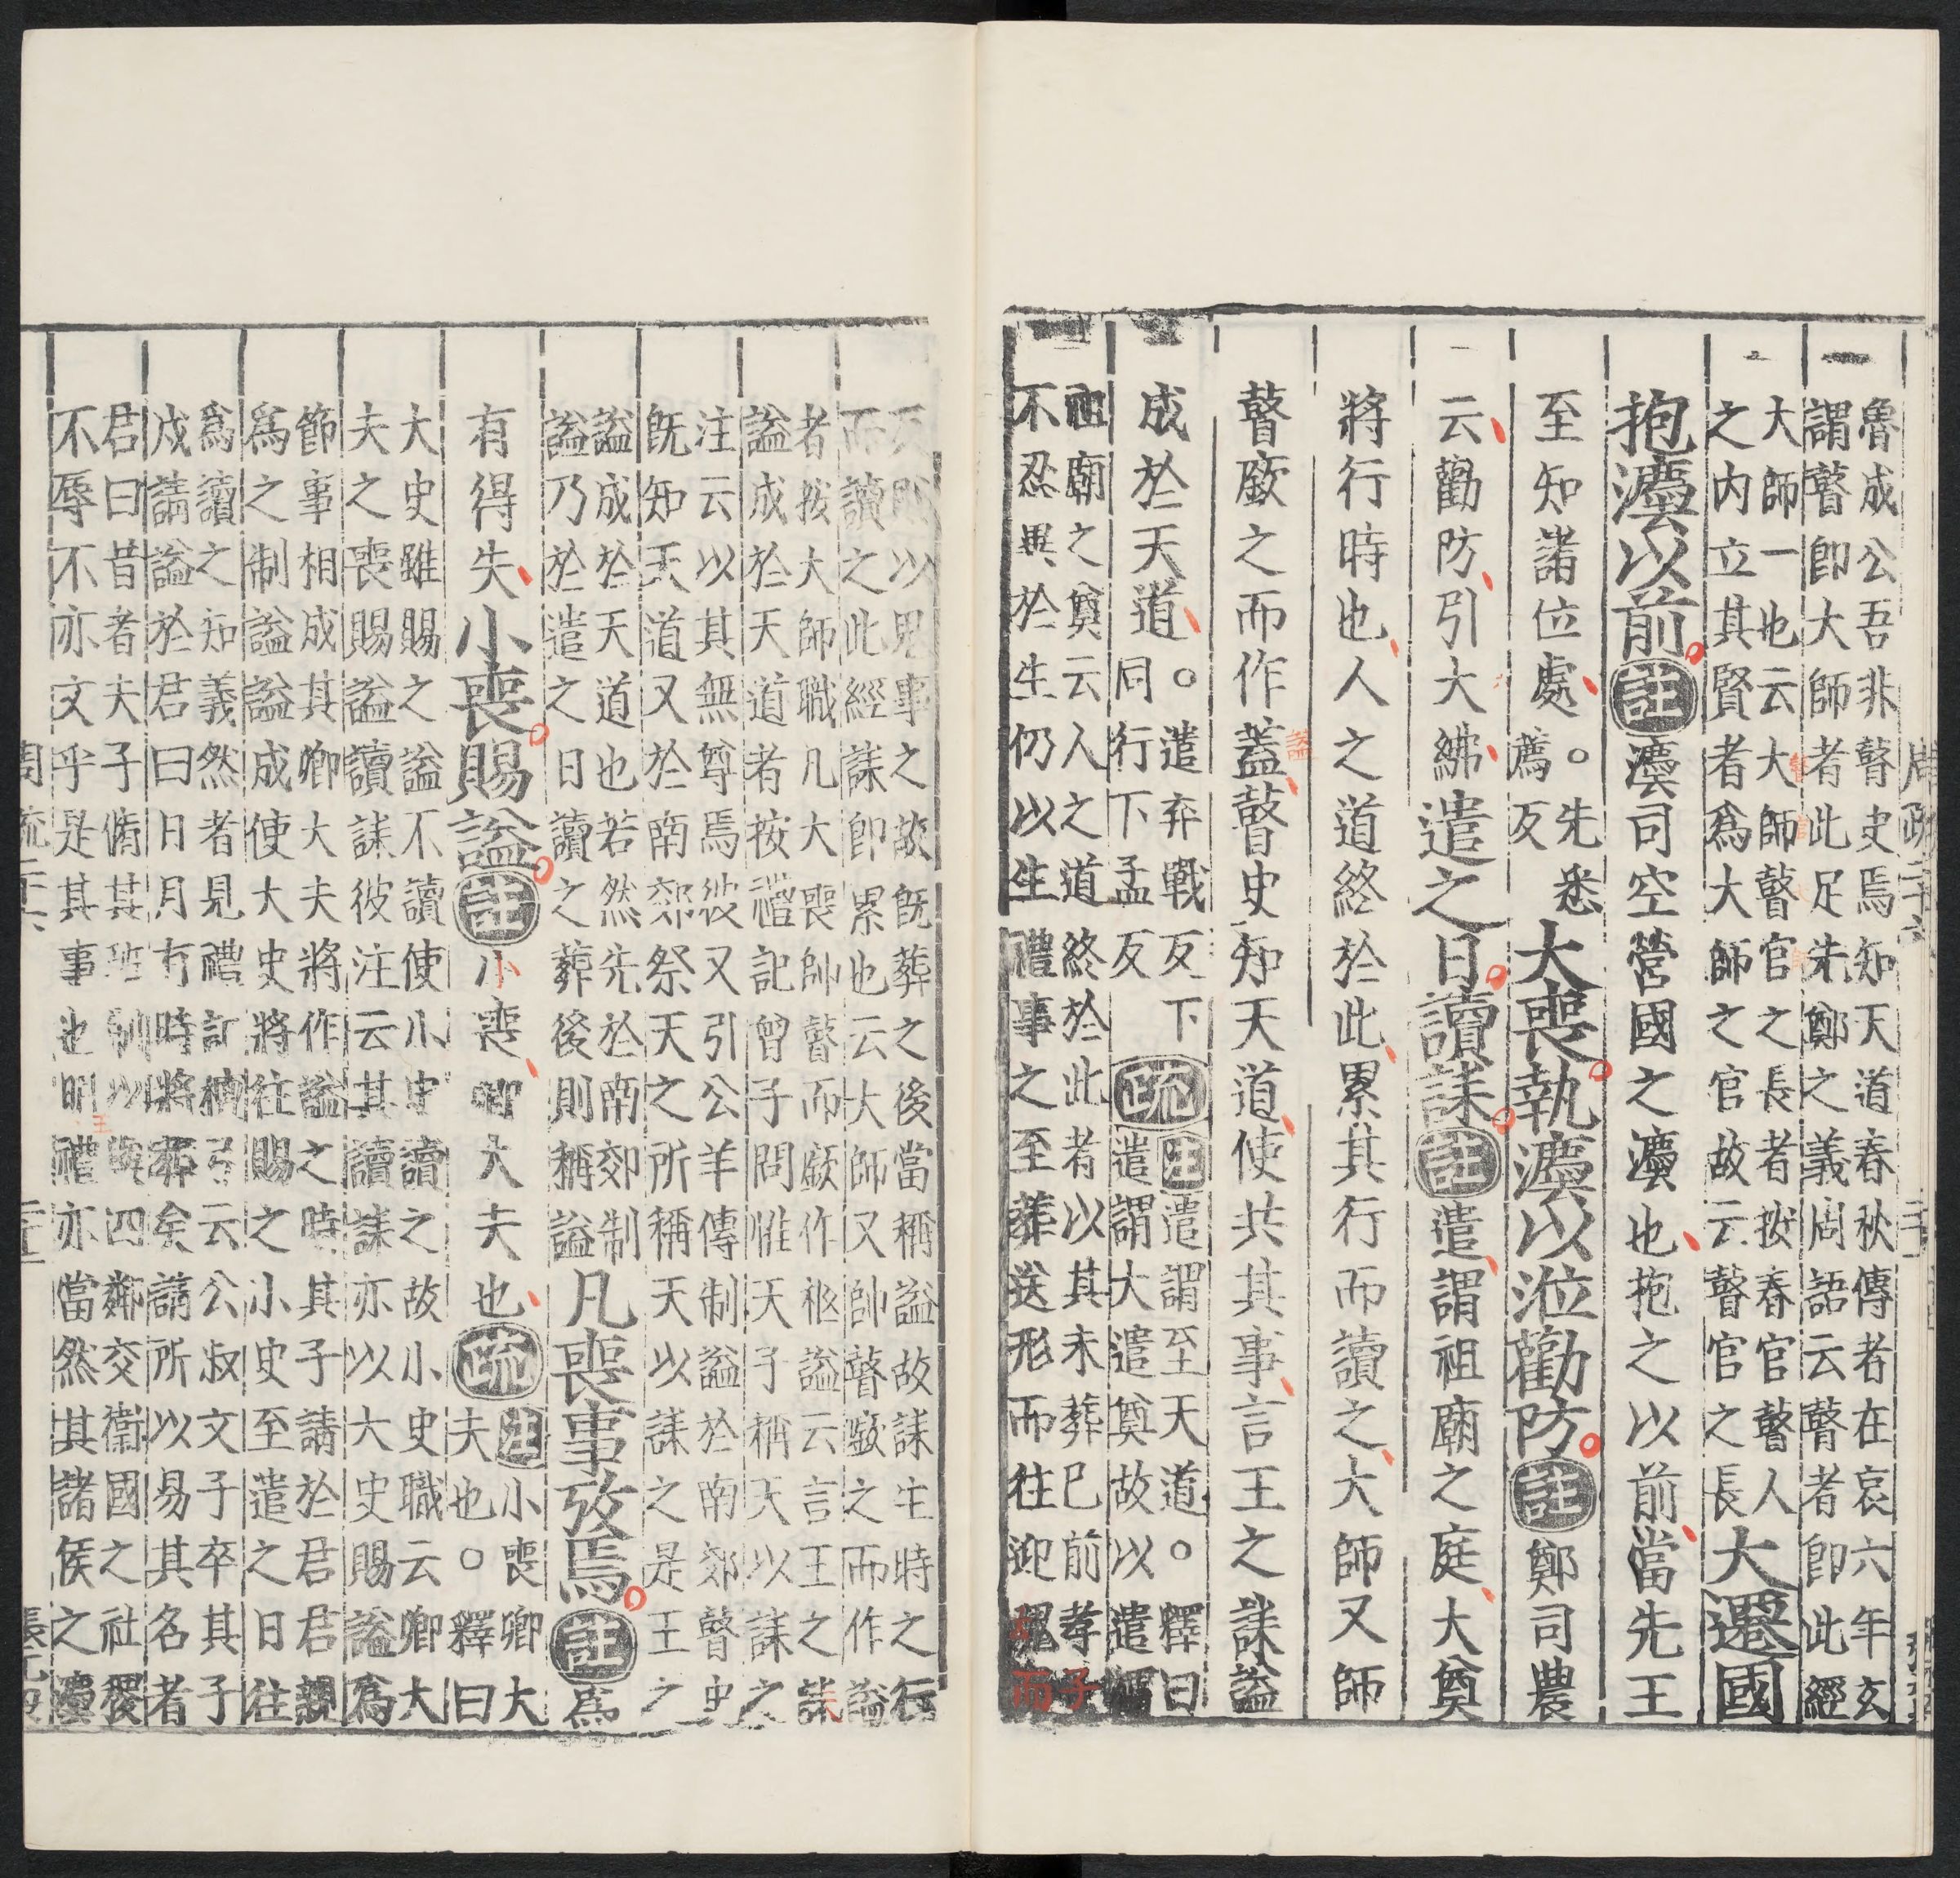 魯成公吾非瞽史焉知天道春秋傳者在哀六年玄
謂瞽即大師者此足先鄭之義周語云瞽者即此經
大師一也云大師瞽官之長者按春官瞽人
之内立其賢者爲大師之官故云瞽官之長大遷國
抱灋以前註灋司空營國之灋也抱之以前當先王
至知諸位處。先悉
薦反
大喪執灋以涖勸防註鄭司農
云勸防引大紼遣之日讀誄註遣謂祖廟之庭大奠
將行時也人之道終於此累其行而讀之大師又師
瞽廞之而作蓋瞽史知天道使共其事言王之誄謚
成於天道。遣弃戰反下
同行下孟反
疏注遣謂至天道。釋曰
遣謂大遣奠故以遣
祖廟之奠云人之道終於此者以其未葬已前孝子
不忍異於生仍以生禮事之至葬送形而往迎而
天則以鬼事之故既葬之後當稱謚故誄生時之行
而讀之此經誄即累也云大師又帥瞽廞之而作謚
者按大師職凡大喪帥瞽而廞作柩謚云言王之誄
謚成於天道者按禮記曾子問惟天子稱天以誄之
注云以其無尊焉彼又引公羊傳制謚於南郊瞽史
旣知天道又於南郊祭天之所稱天以誄之是王之
謚成於天道也若然先於南郊制
謚乃於遣之日讀之葬後則稱謚凡喪事攷焉註爲
有得失小喪賜謚註小喪卿大夫也疏注小喪卿大
夫也。釋曰
大史雖賜之謚不讀使小史讀之故小史職云卿大
夫之喪賜謚讀誄彼注云其讀誄亦以大史賜謚爲
節事相成其卿大夫將作謚之時其子請於君君親
爲之制謚謚成使大史將往賜之小史至遣之日往
爲讀之知義然者見禮記檀弓云公叔文子卒其子
戍請謚於君曰日月有時將葬矣請所以易其名者
君曰昔者夫子脩其班制以與四鄰交衞國之社稷
不辱不亦文乎是其事也明禮亦當然其諸侯之灋